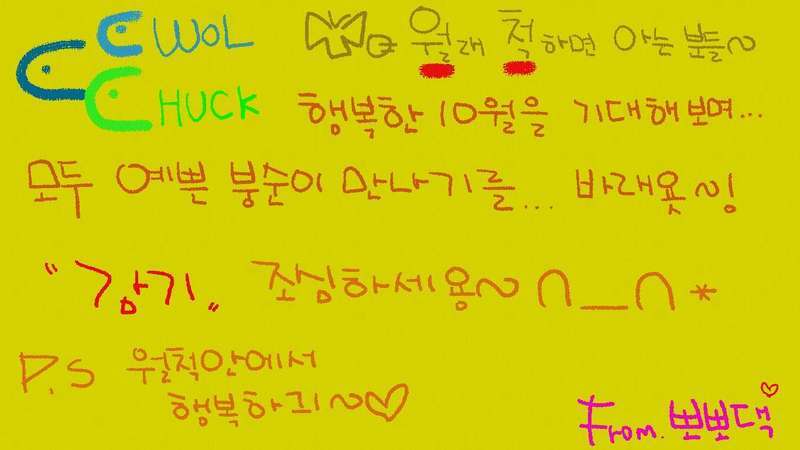 WOL
CHUCK
월래 척하면 아는 분들~
행복한 10월을 기대해보며...
모두 예쁜 붕순이 만나기를... 바래욧~!
"감기" 조심하세용~ ∩__∩*
P.S 월척안에서
행복하긔~♡
From. 뽀뽀댁♡